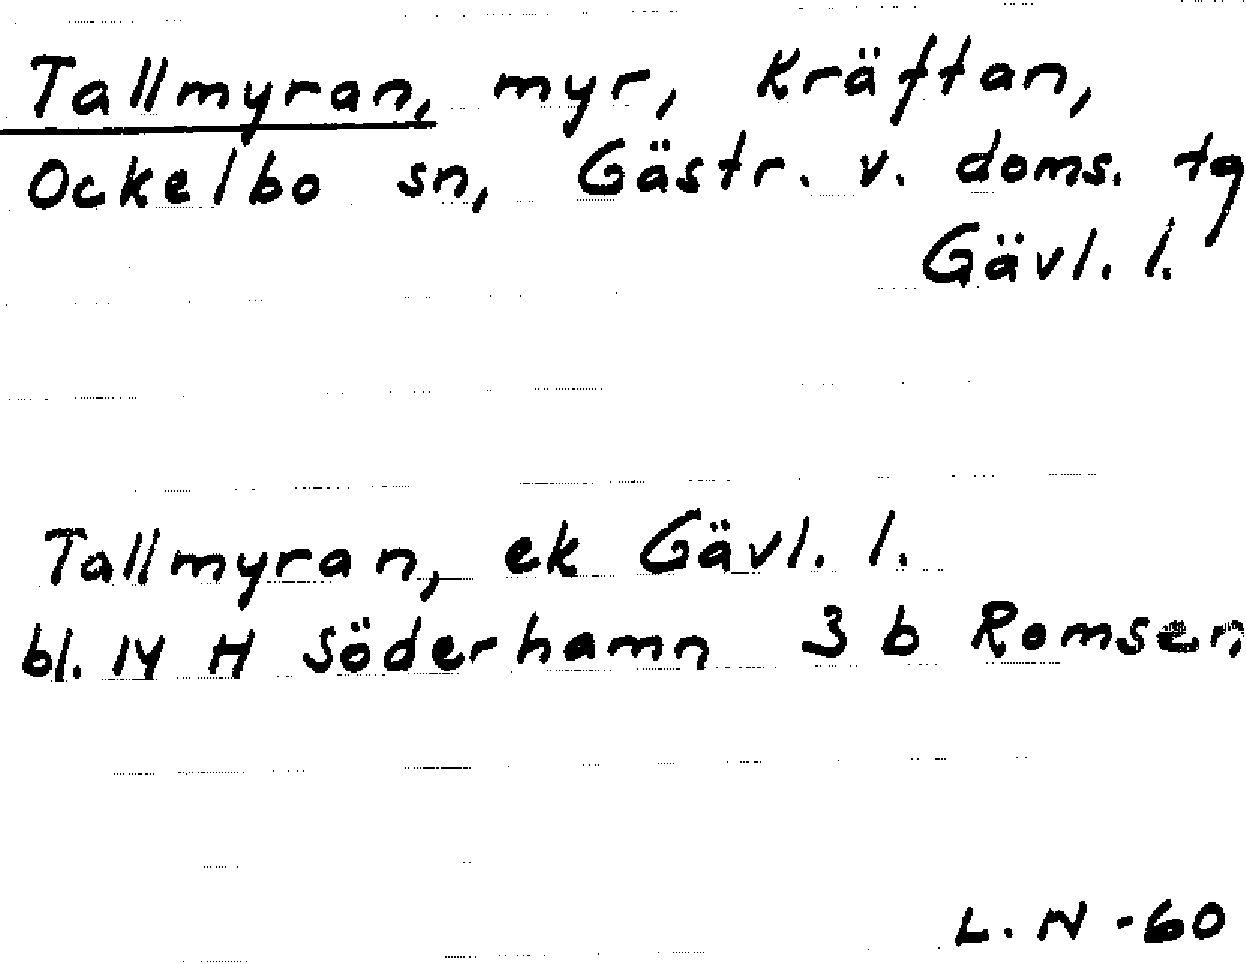 Tallmyran, myr, Kräftan,
Ockelbo sn, Gästr. v. doms. tg
Gävl. l.
Tallmyran, ek Gävl. l.
bl. 14 H Söderhamn 3 b Romsen
L. N -60